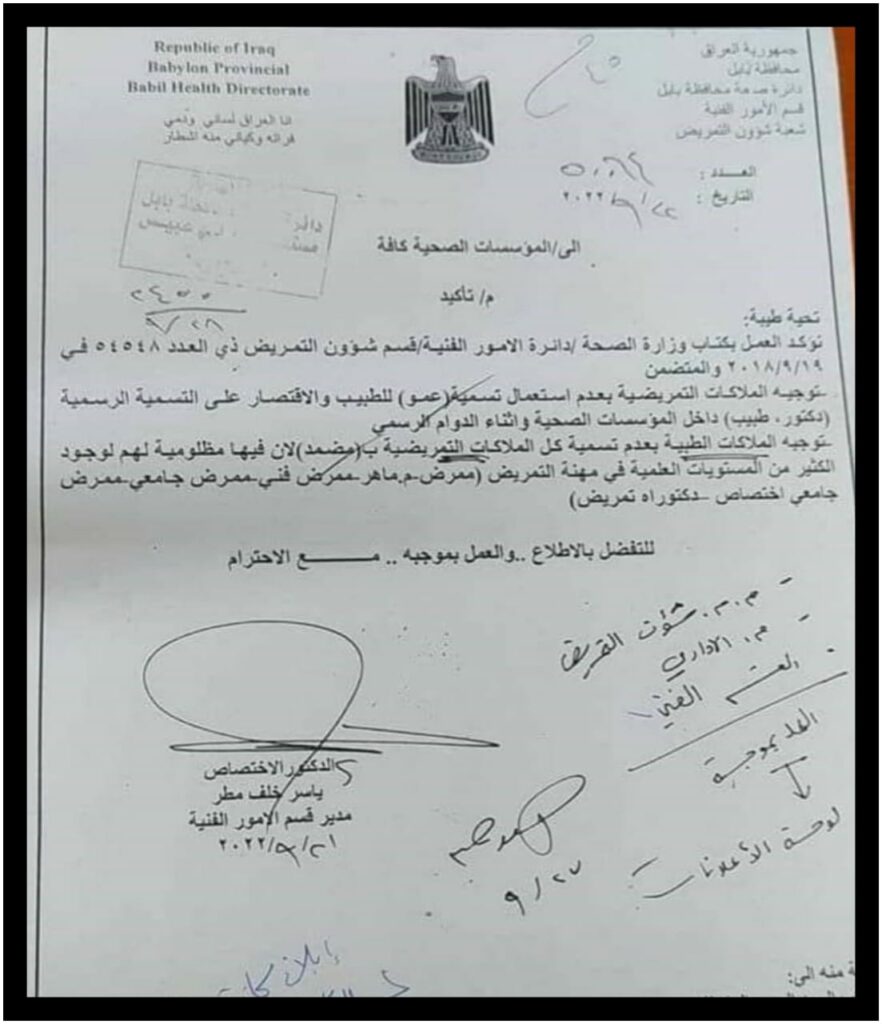 Republic of Iraq
Babylon Provincial
Babil Health Directorate
انا العراق لساني ودمي
فراته وكياني منه اشطار
جمهورية العراق
محافظة بابل
دائرة صحة محافظة بابل
قسم الأمور الفنية
شعبة شؤون التمريض
العدد :
التاريخ : ٢٠٢٢/٩/٢٢
٤٥
الى/المؤسسات الصحية كافة
م/ تأكيد
٢٤٥٥
٩/٢٨
تحية طيبة:
نؤكد العمل بكتاب وزارة الصحة /دائرة الامور الفنية/قسم شؤون التمريض ذي العدد ٥٤٥٤٨ في
٢٠١٨/٩/١٩ والمتضمن
-توجيه الملاكات التمريضية بعدم استعمال تسمية(عمو) للطبيب والاقتصار على التسمية الرسمية
(دكتور، طبيب) داخل المؤسسات الصحية واثناء الدوام الرسمي
-توجيه الملاكات الطبية بعدم تسمية كل الملاكات التمريضية ب(مضمد)لان فيها مظلومية لهم لوجود
الكثير من المستويات العلمية في مهنة التمريض (ممرض-م.ماهر-ممرض فني-ممرض جامعي-ممرض
جامعي اختصاص –دكتوراه تمريض)
للتفضل بالاطلاع ..والعمل بموجبه .. مـــــع الاحترام
- م.م. شؤون التمريض
- م. الاداري
. القسم الفني
العمل بموجبه
لوحة الأعلانات
٩/٢٧
الدكتور الاختصاص
ياسر خلف مطر
مدير قسم الامور الفنية
٢٠٢٢/٩/٢١
منه الى: